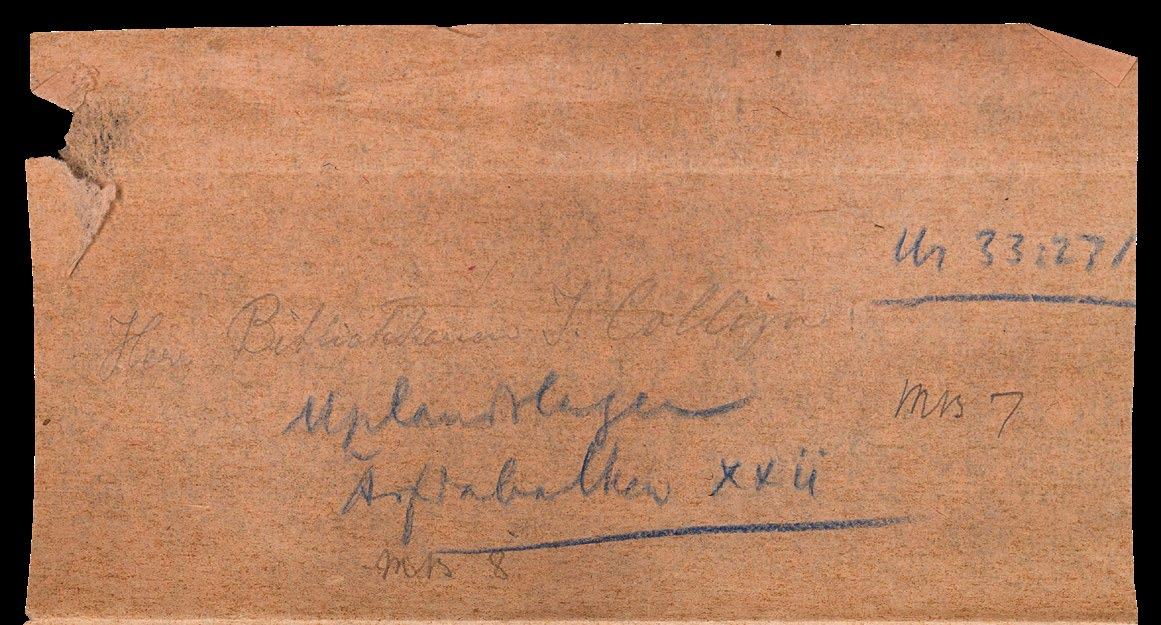 Ur 33:27/
Herr Bibliotekarien I. Collijn
Uplandslagen
Ärfdabalken xxii
MB 7
MB 8